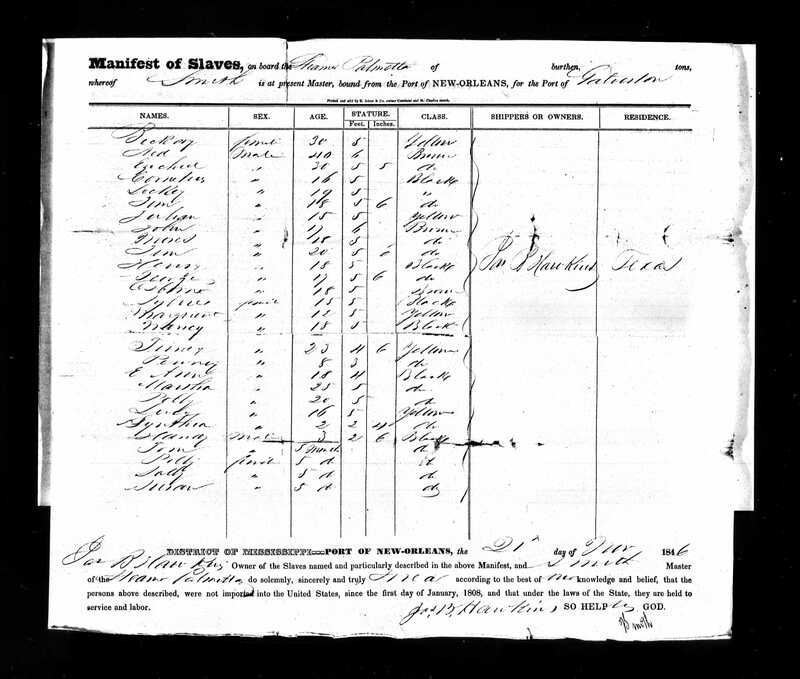 Manifest of Slaves, on board the Steamer Palmetto of burthen, tons,
whereof Smith is at present Master, bound from the Port of NEW-ORLEANS, for the Port of Galveston
NAMES. SEX. AGE. STATURE. CLASS. SHIPPERS OR OWNERS. RESIDENCE.
Feet. Inches.
30 5 Yellow
Ned Male 40 6 Brown
Ezechiel " 30 5 5 do
Cornelius " 16 5 Black
" 19 5 "
Jim " 18 5 6 do
" 15 5 Yellow
John " 17 6 Brown
Moses " 18 5 do
Jim " 20 5 do
Henry " 18 5 Black Jas B Hawkins Texas
George " 17 5 6 do
" 18 5 Brown
15 5 Black
Margaret " 12 5 Yellow
Nancy " 18 5 Black
" 23 4 6 Yellow
" 8 3 do
E Ann " 18 4 Black
Marsha " 25 5 do
Polly " 20 5 do
" 16 5 Yellow
Synthia " 2 2 4 do
Male 3 2 6 Black
Tom " 5 Month do
Polly 5 d d
" 5 d do
Susan " 5 d do
DISTRICT OF MISSISSIPPI—PORT OF NEW-ORLEANS, the 21 day of 1846
Jas B Hawkins Owner of the Slaves named and particularly described in the above Manifest, and Smith Master
of the Steamer Palmetto do solemnly, sincerely and truly according to the best of our knowledge and belief, that the
persons above described, were not imported into the United States, since the first day of January, 1808, and that under the laws of the State, they are held to
service and labor. Jas. B. Hawkins SO HELP GOD.
Smith